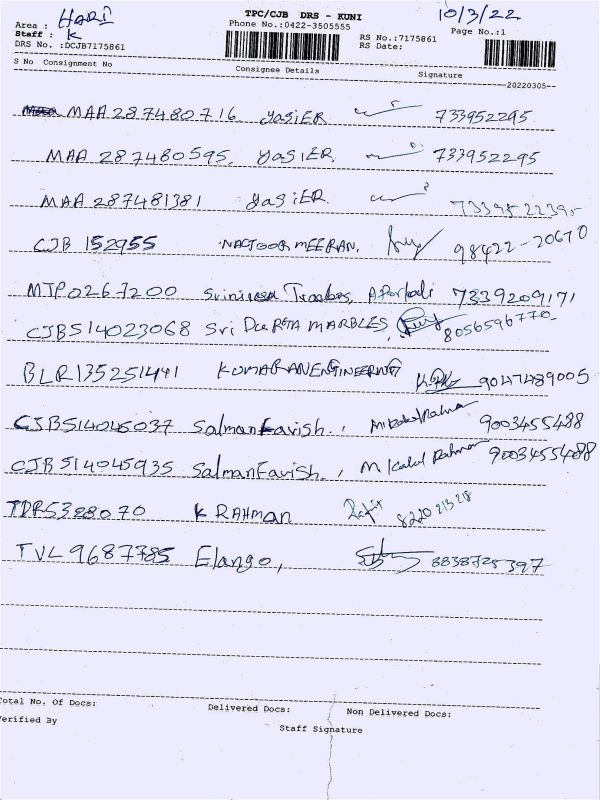 TPC/CJB DRS - KUNI 10/3/22
Area : HARI Phone No.:0422-3505555 Page No.:1
Staff : K RS No.:7175861
DRS No. :DCJB7175861 RS Date:
S No Consignment No Consignee Details Signature
20220305
MAA 287480716 yasiER 733952295
MAA 287480595, yasiER. 733952295
MAA 287481381 yasiER
CJB 152955 NAGOOR MEERAN. 98422-20670
MTP0267200 Srinivasa Traders, 7339209171
CJB514023068 Sri DURGA MARBLES, 8056596770
BLR135251441 KUMARAN ENGINEERING 9047489005
CJB514045037 Salman Favish., 9003455488
CJB514045935 Salman Favish., M Kalal Rahma 9003455488
TDR5328070 K RAHMAN 822021328
TVL9687785 Elango, 8838725397
Total No. Of Docs: Delivered Docs: Non Delivered Docs:
Verified By Staff Signature